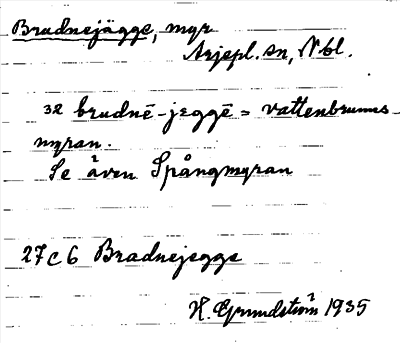 Bradnejägge, myr
Arjepl. sn, Nbl.
32 brudnē-jeggē = vattenbrunns-
myran.
Se även Spångmyran
27 c 6 Bradnejegge
H. Grundström 1935